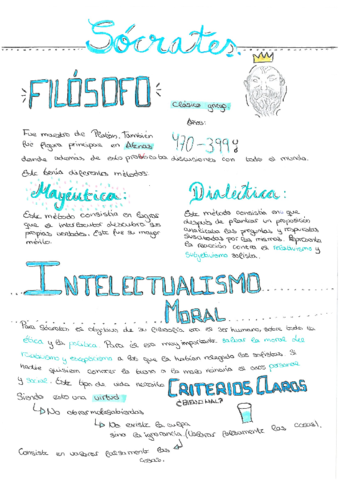 Sócrates.
FILÓSOFO
Clásico griego.
Años:
470-399
Fue maestro de Platón. También
fue figura principal en Atenas
donde además de esto practicaba discusiones con todo el mundo.
Este tenía diferentes métodos:
Mayéutica:
Dialéctica:
Este método consistía en lograr
que el interlocutor descubra sus
propias verdades. Este fue su mayor
mérito.
Este método consistía en que
después de plantear un proposición
analizaba las preguntas y respuestas
suscitadas por las mismas. Representa
la reacción contra el relativismo y
subjetivismo sofista.
INTELECTUALISMO
MORAL
Para Sócrates el objetivo de su filosofía era el ser humano, sobre todo la
ética y la política. Para él era muy importante salvar la moral del
relativismo y escepticismo a los que la habían relegado los sofistas. Si
nadie quisiera conocer la base a la moral humana el caos personal
y social. Este tipo de vida necesita CRITERIOS CLAROS
¿BIEN O MAL?
Siendo esto una virtud.
No obrar malas sabiendas
No existe la culpa
sino la ignorancia (valorar falsamente las cosas).
Consiste en valorar falsamente las
cosas.